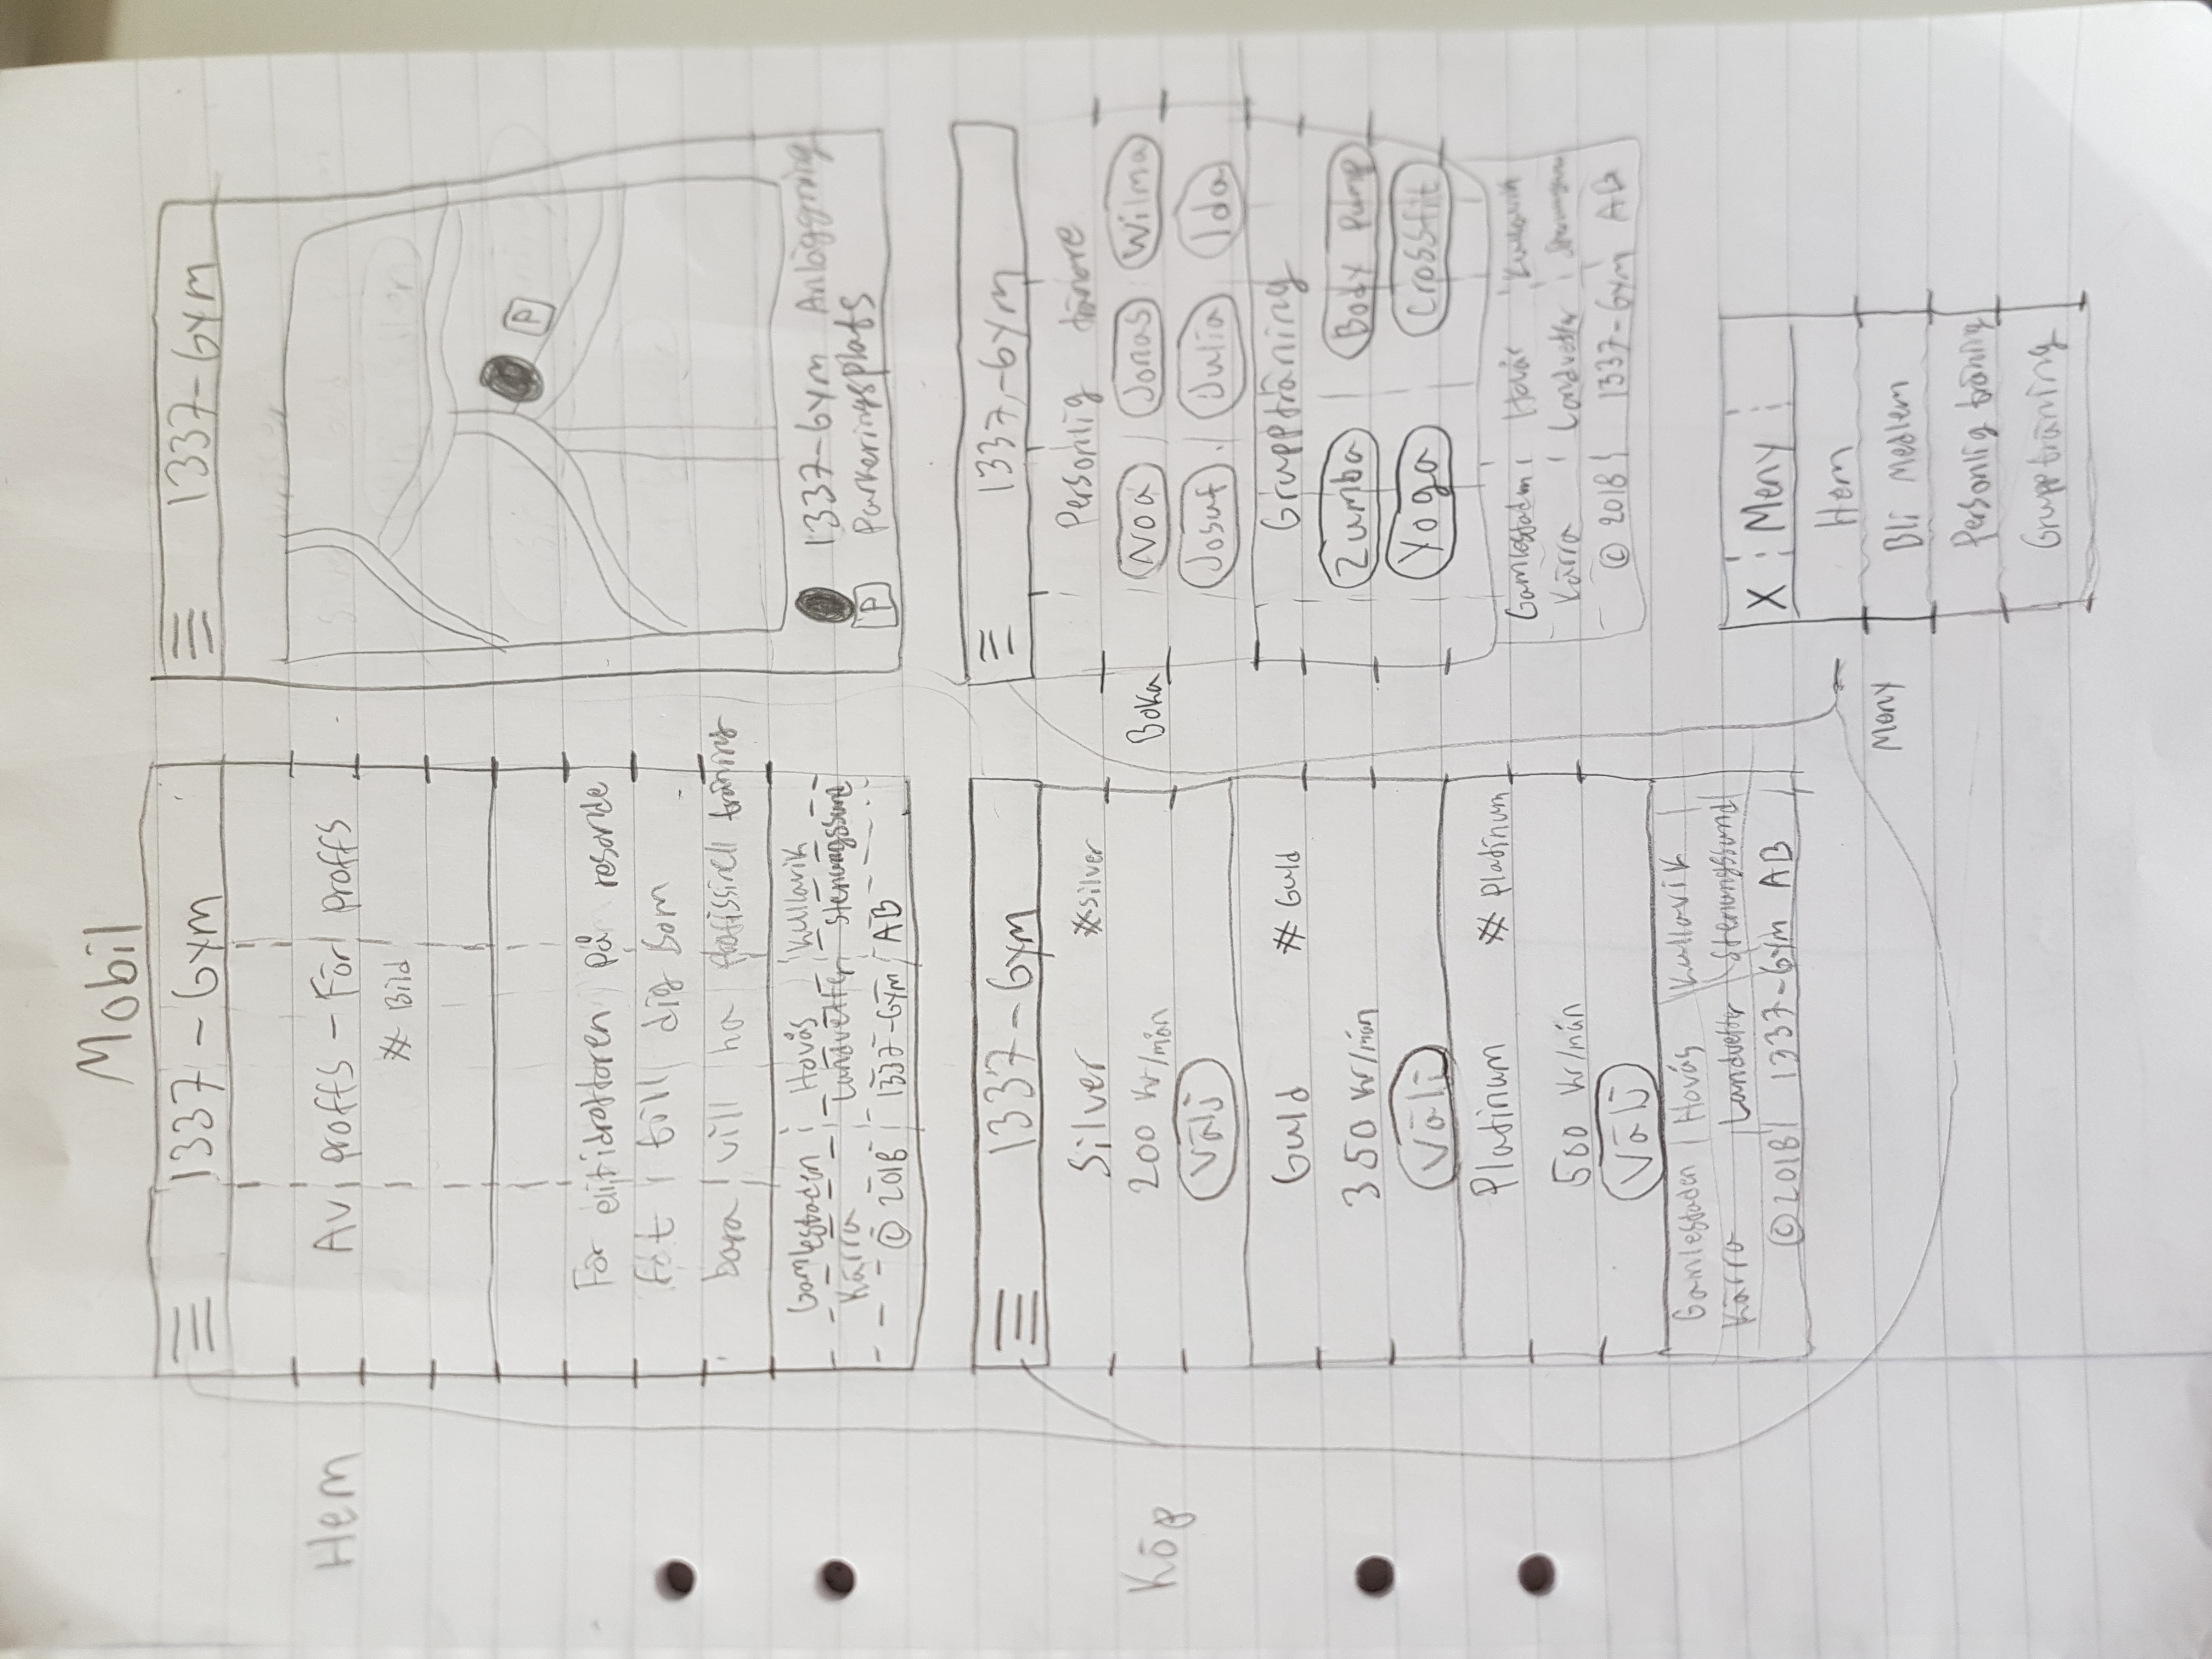 Mobil
1337 - Gym
Hem
Av proffs - För proffs
# Bild
För elitidrottaren på resande
fot till dig som
bara vill ha träning
Gamlestaden Hovås Kullavik
Kärra Landvetter Stenungssund
© 2018 1337-Gym AB
1337-Gym
P
1337-Gym Anläggning
P Parkeringsplats
Köp
1337-Gym
Silver # Silver
200 kr/mån
Välj
Guld # Guld
350 kr/mån
Välj
Platinum # Platinum
500 kr/mån
Välj
Gamlestaden Hovås Kullavik
Kärra Landvetter Stenungssund
© 2018 1337-Gym AB
Boka
1337-Gym
Personlig tränare
Noa Jonas Wilma
Josuf Julia Ida
Gruppträning
Zumba Body Pump
Yoga Crossfit
Gamlestaden Hovås Kullavik
Kärra Landvetter
© 2018 1337-Gym AB
Meny
X Meny
Hem
Bli Medlem
Personlig träning
Gruppträning